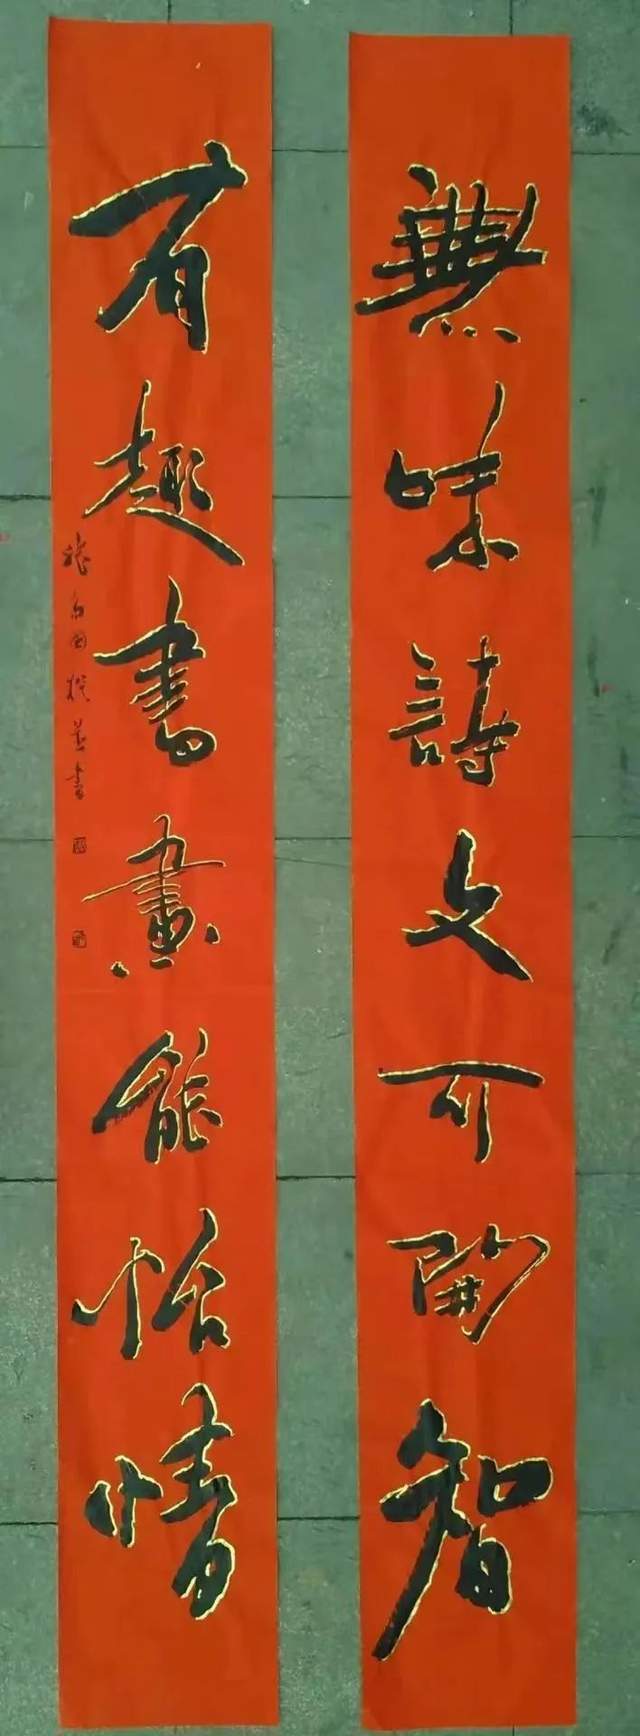 無味詩文可開智
有趣書畫能怡情